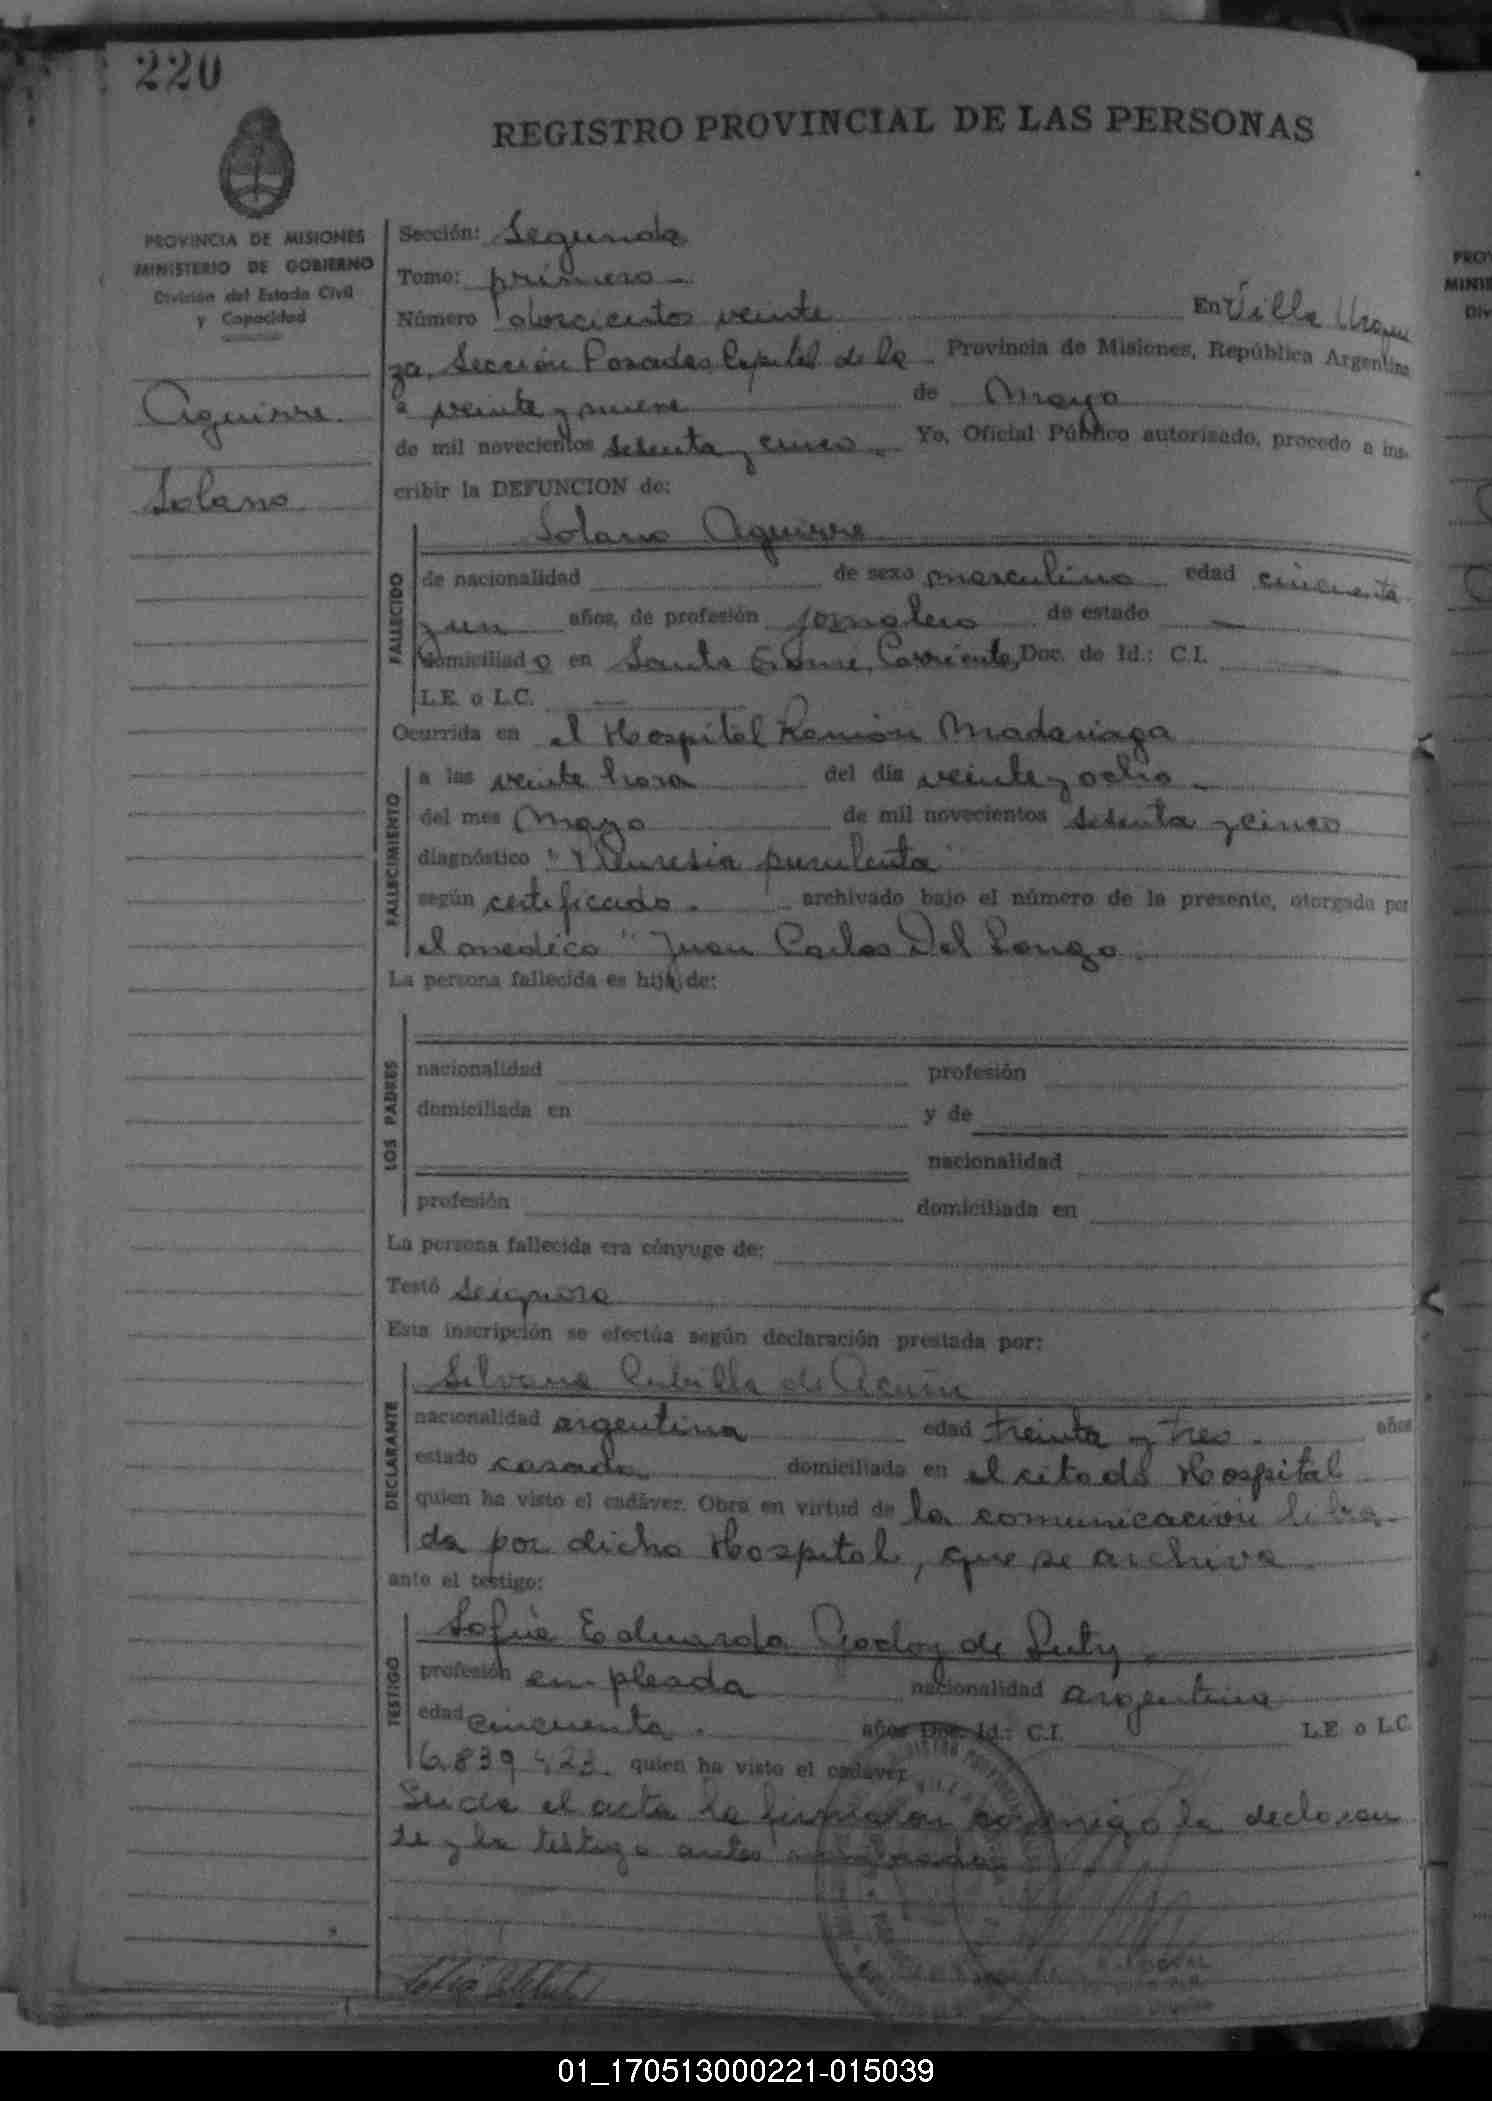 220
REGISTRO PROVINCIAL DE LAS PERSONAS
PROVINCIA DE MISIONES
MINISTERIO DE GOBIERNO
División del Estado Civil
y Capacidad
Aguirre
Solano
Sección: Segunda
Tomo: primero
Número doscientos veinte En Villa Urqui
za, Sección Posadas Capital de la Provincia de Misiones, República Argentina
a veinte y nueve de Mayo
de mil novecientos setenta y cinco Yo, Oficial Público autorizado, procedo a ins-
cribir la DEFUNCION de:
Solano Aguirre
FALLECIDO
de nacionalidad de sexo masculino edad cincuenta
y un años, de profesión jornalero de estado —
domiciliado en Santo Tomé, Corrientes, Doc. de Id.: C.I.
L.E. o L.C. —
Ocurrida en el Hospital Ramón Madariaga
FALLECIMIENTO
a las veinte hora del día veinte y ocho
del mes Mayo de mil novecientos setenta y cinco
diagnóstico "Pleuresia purulenta"
según certificado. archivado bajo el número de la presente, otorgado por
el medico "Juan Carlos Del Longo.
La persona fallecida es hija de:
LOS PADRES
nacionalidad profesión
domiciliada en y de
nacionalidad
profesión domiciliada en
La persona fallecida era cónyuge de:
Testó se ignora
Esta inscripción se efectúa según declaración prestada por:
DECLARANTE
Silvana Cubilla de Acuña
nacionalidad argentina edad treinta y tres. años
estado casada domiciliada en el citado Hospital
quien ha visto el cadáver. Obra en virtud de la comunicación libra-
da por dicho Hospital, que se archiva.
ante el testigo:
TESTIGO
Sofia Eduarda Godoy de Luty
profesión empleada nacionalidad argentina
edad cincuenta. años Doc. Id.: C.I. L.E. o L.C.
6.839.423. quien ha visto el cadáver
Leida el acta la firmaron conmigo la declaran
te y la testigo antes
PRO
MINIS
Div
01_170513000221-015039